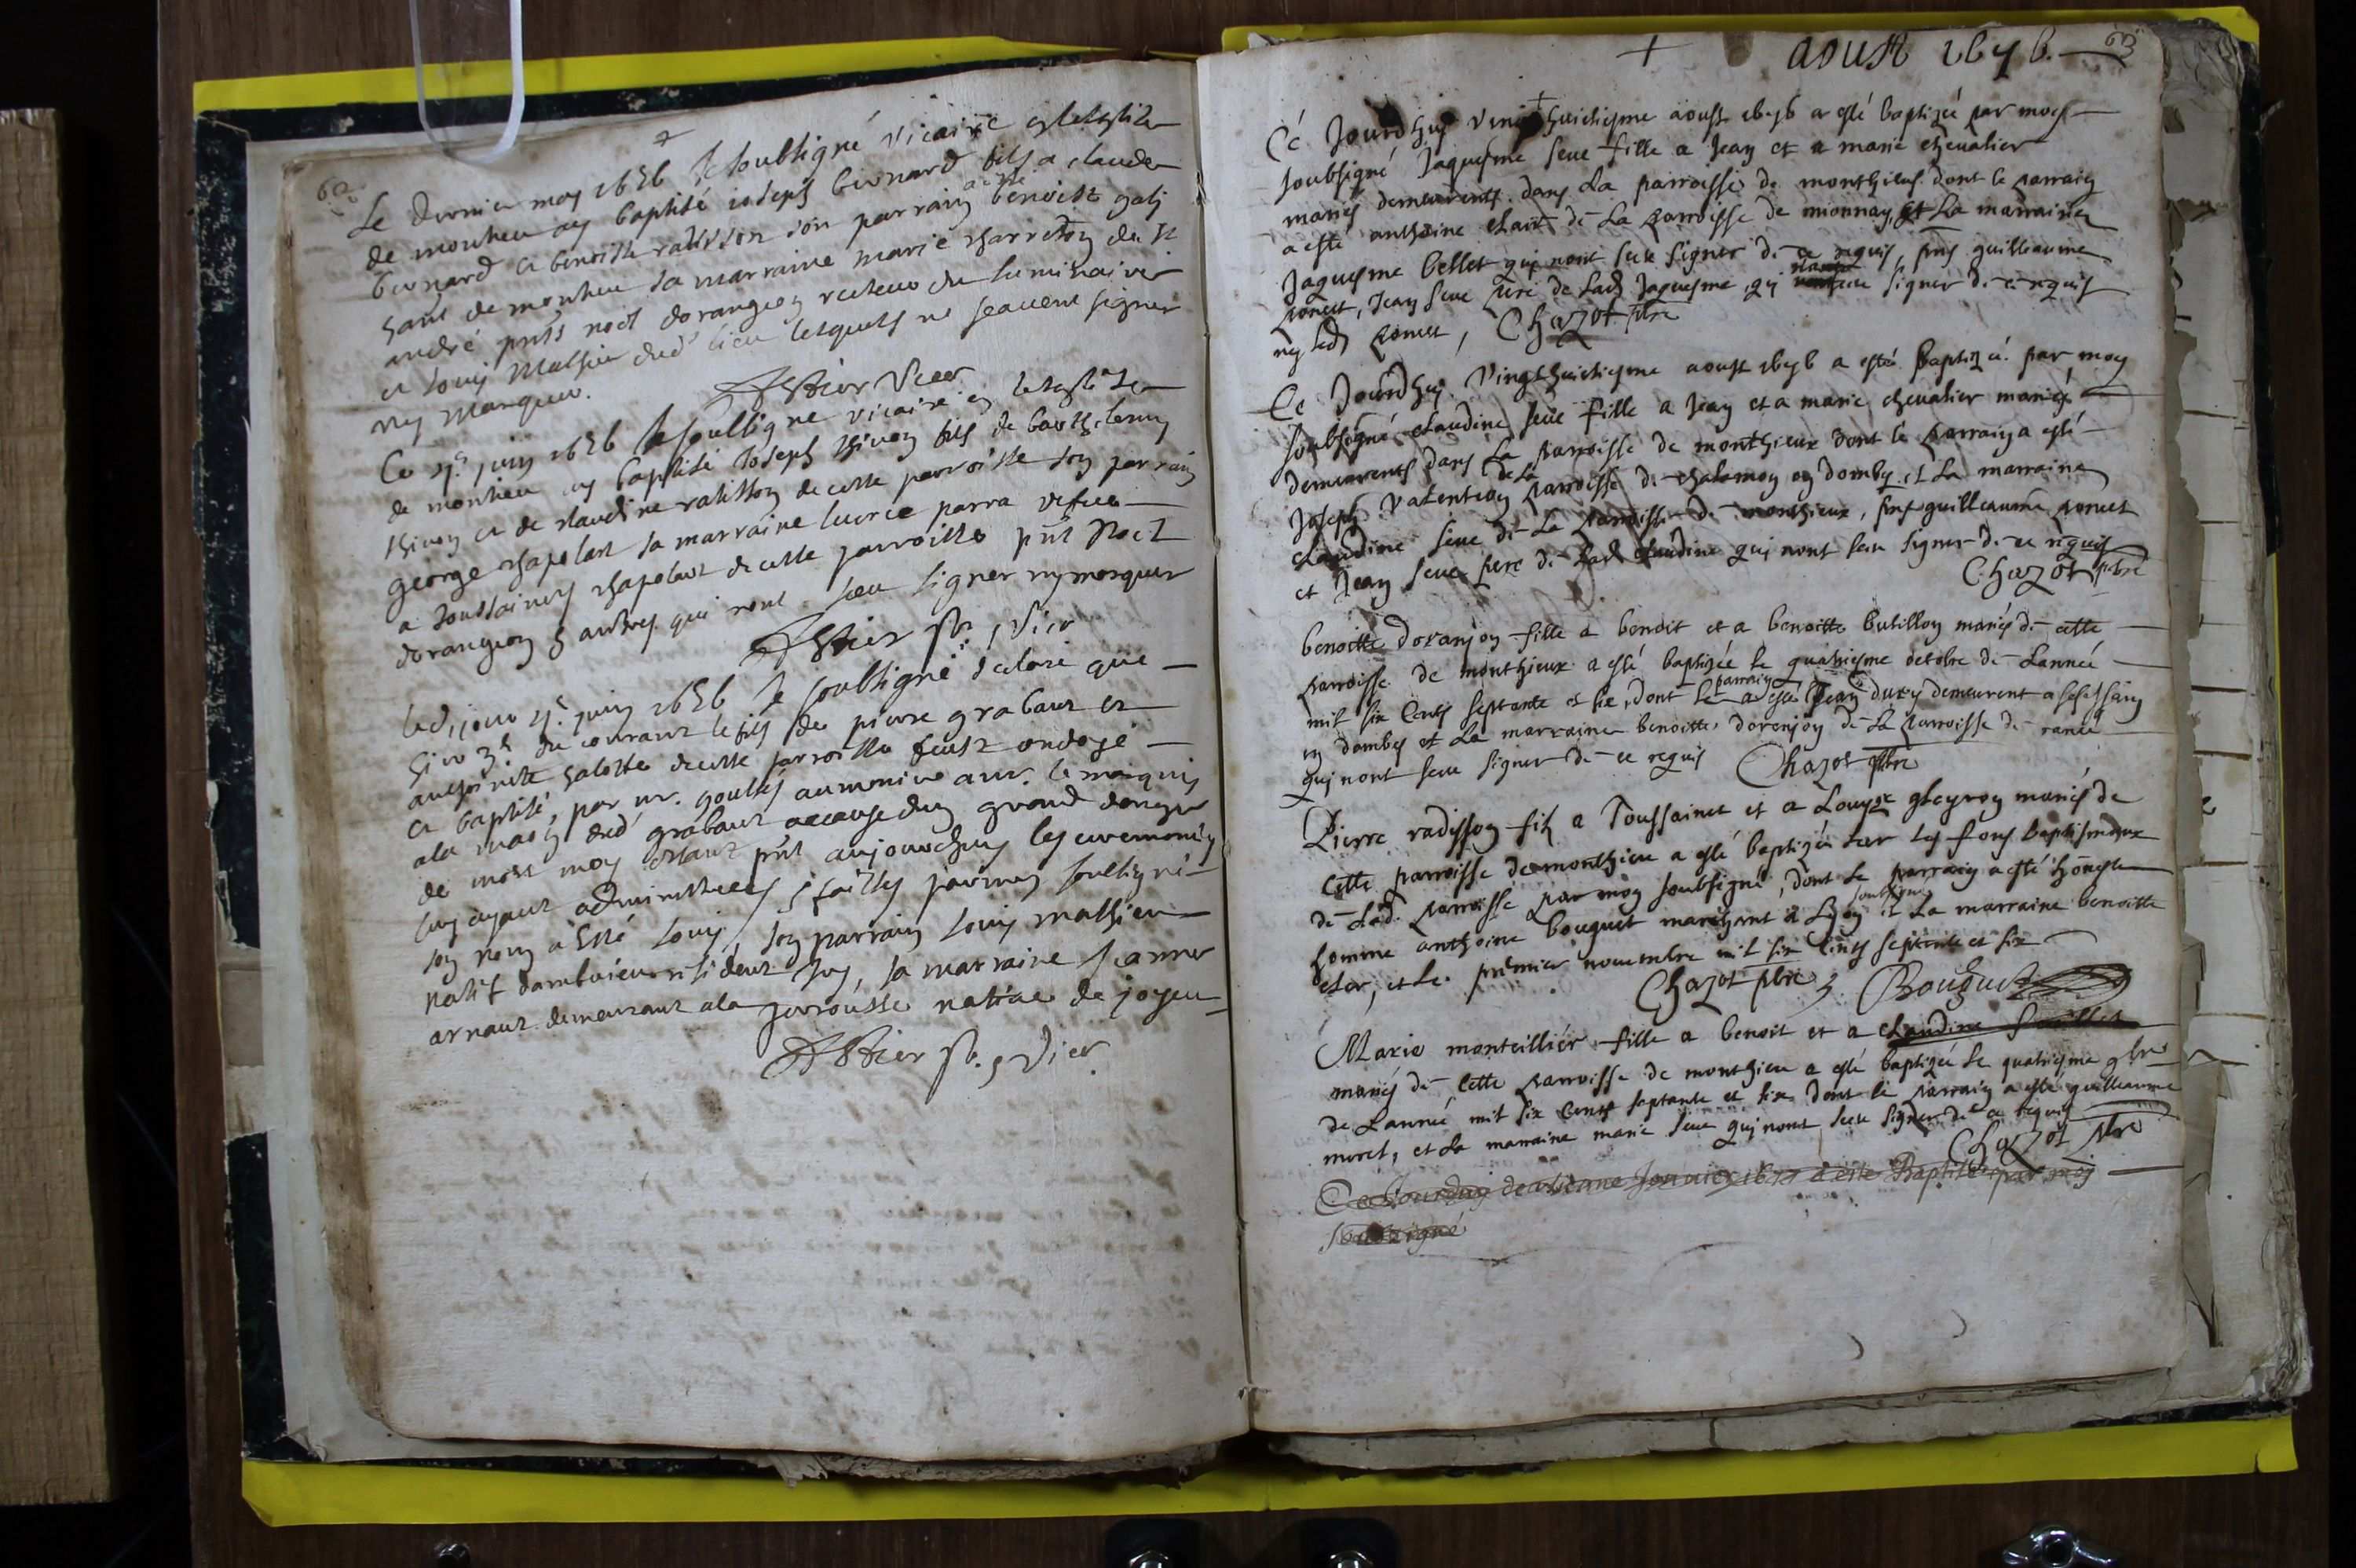 62
Le dernier may 1676 Je soubsigné vicaire en leglise
de monthieu ay baptisé ioseph bernard fils a claude
bernard et benoiste ratisson son parrain a esté benoist
sa marraine marie charreton de st
andré pnts noel dorangeon recteur du luminaire
et louis Mathieu dud lieu lesquels ne scavent signer
ny marquer.
Astier vicer
Ce juin 1676 Je soubsigne vicaire en leglise
de monthieu ay baptisé Joseph thivon fils de barthelemy
thivon et de claudine ratisson de cette parroisse son parrain
george chapolart sa marraine lucree parra vefue
a toussainct chapolart de cette parroisse pnt Noel
dorangeon & autres qui nont sceu signer ny marquer
Astier pb, Vicr
led, jour juin 1676 Je soubsigné declare que
hier du courant le fils de pierre grabaut et
de cette parroisse feust ondoyé
et baptisé, par mr. aumonier a mr. le marquis
a la maison dud grabaut a cause dun grand danger
de mort moy estant pnt aujourdhuy les ceremonies
luy ayant administrees & faittes par moy soubsigné
son nom a esté louis, son parrain louis mathieu
natif dambrieu residant icy, sa marraine Jeanne
arnaut demeurant a la parroisse native de joyeu
Astier pb, Vicr
+ aoust 1676. 63
Cé Jourdhuy vingt huictiesme aoust 1676 a esté baptizée par moy
soubsigné Jaquesme seue fille a Jean et a marie chevalier
mariés demeurents dans La parroisse de monthieux dont le parrain
a esté anthoine clair de La parroisse de mionnay, et La marraine
Jaquesme bellet qui nont sceu signer de ce requis, pnts guilleaume
poncet, Jean seue pere de Lad Jaquesme, qui sceu signer de ce requis
ny led poncet, Chazot pbre
Ce Jourdhuy vingthuictiesme aoust 1676 a esté baptizée par moy
soubsigné claudine seue fille a Jean et a marie chevalier mariés
demeurents dans La parroisse de monthieux dont le parrain a esté
Joseph valention de La parroisse de chalamon en dombes et La marraine
claudine seue de La parroisse de monthieux, pnts guilleaume poncet
et Jean seue pere de Lad claudine qui nont sceu signer de ce requis
Chazot pbre
benoitte doranjon fille a benoit et a benoitte butillon mariés de cette
parroisse de monthieux a esté baptizée le quatriesme octobre de Lannée
mil six cents septante et six, dont le parrain a esté Jean dury demeurent a
en dombes et La marraine benoitte dorenjon de La parroisse de rancé
qui nont sceu signer de ce requis Chazot pbre
Pierre radisson fils a Toussainct et a Louyse gleyron mariés de
Cette parroisse de monthieu a esté baptizé sur les fons baptismaux
de Lad. parroisse par moy soubsigné, dont Le parrain a esté honeste
homme anthoine bouquet marchant a Lyon soubsigné et La marraine benoitte
et le premier novembre mil six cents septente et six
Chazot pbre, Bouquet
Marie monteillier fille a benoit et a claudine
mariés de Cette parroisse de monthieu a esté baptizée le quatriesme 9bre
de Lannée mil six cents septante et six dont le parrain a esté guilleaume
moret, et La marraine marie seue qui nont sceu signer de ce requis
Chazot pbre
Ce Jourduy deuxieme Janvier 1677 a esté Baptisé par moy
soubsigné